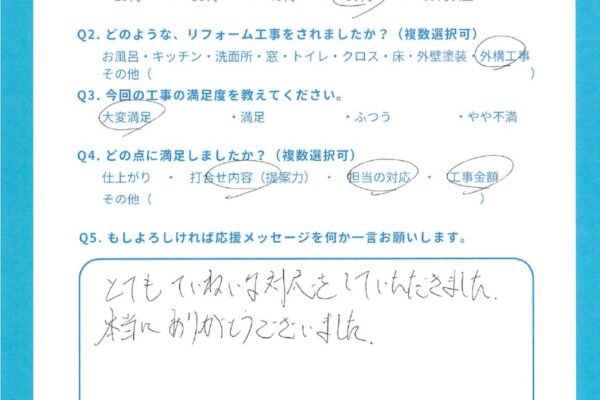 Q2. どのような、リフォーム工事をされましたか?（複数選択可）
お風呂・キッチン・洗面所・窓・トイレ・クロス・床・外壁塗装・外構工事
その他（ ）
Q3. 今回の工事の満足度を教えてください。
大変満足 ・満足 ・ふつう ・やや不満
Q4. どの点に満足しましたか?（複数選択可）
仕上がり ・ 打合せ内容（提案力） ・ 担当の対応 ・ 工事金額
その他（ ）
Q5. もしよろしければ応援メッセージを何か一言お願いします。
とてもていねいな対応をしていただきました.
本当にありがとうございました.